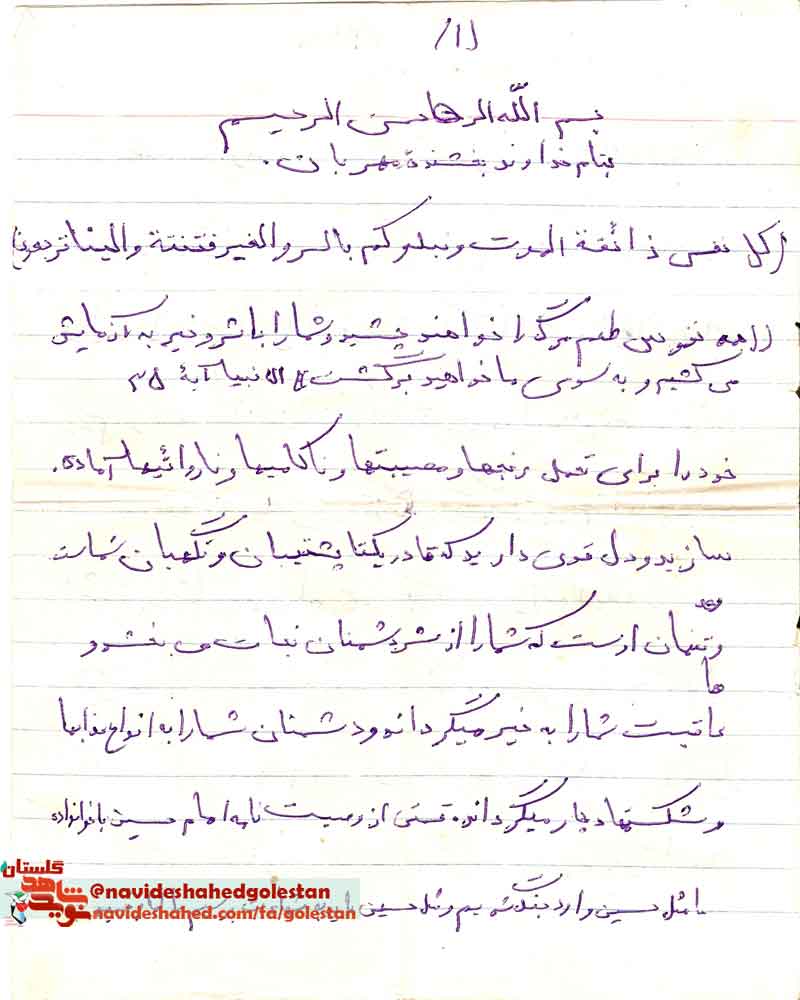 /۱/
بسم الله الرحامن الرحیم
بنام خداوند بخشندۀ مهربان.
(کل نفس ذائقة الموت و نبلوکم بالسر و الخیر فتنتة و الینا ترجعون)
((همه نفوس طعم مرگ را خواهند چشید و شما را با شر و خیر به آزمایش
می کشیم و به سوی ما خواهید برگشت)) الانبیا آیۀ ۳۵
خود را برای تحمل رنجها و مصیبتها و ناکامیها و ناروائیها آماده.
سازید و دل قوی دارید که قادر یکتا پشتیبان و نگهبان شماست
و تنهان اوست که شما را از شر دشمنان نجات می بخشد و
ها
عاقبت شما را به خیر میگرداند و دشمنان شما را به انواع عذابها
و شکستها دچار میگرداند. قسمتی از وصیت نامه امام حسین با خوانواده
ما مثل حسین وارد جنگ شدیم و مثل حسین باید به
گلستان
نوید شاهد
@navideshahedgolestan
navideshahed.com/fa/golestan